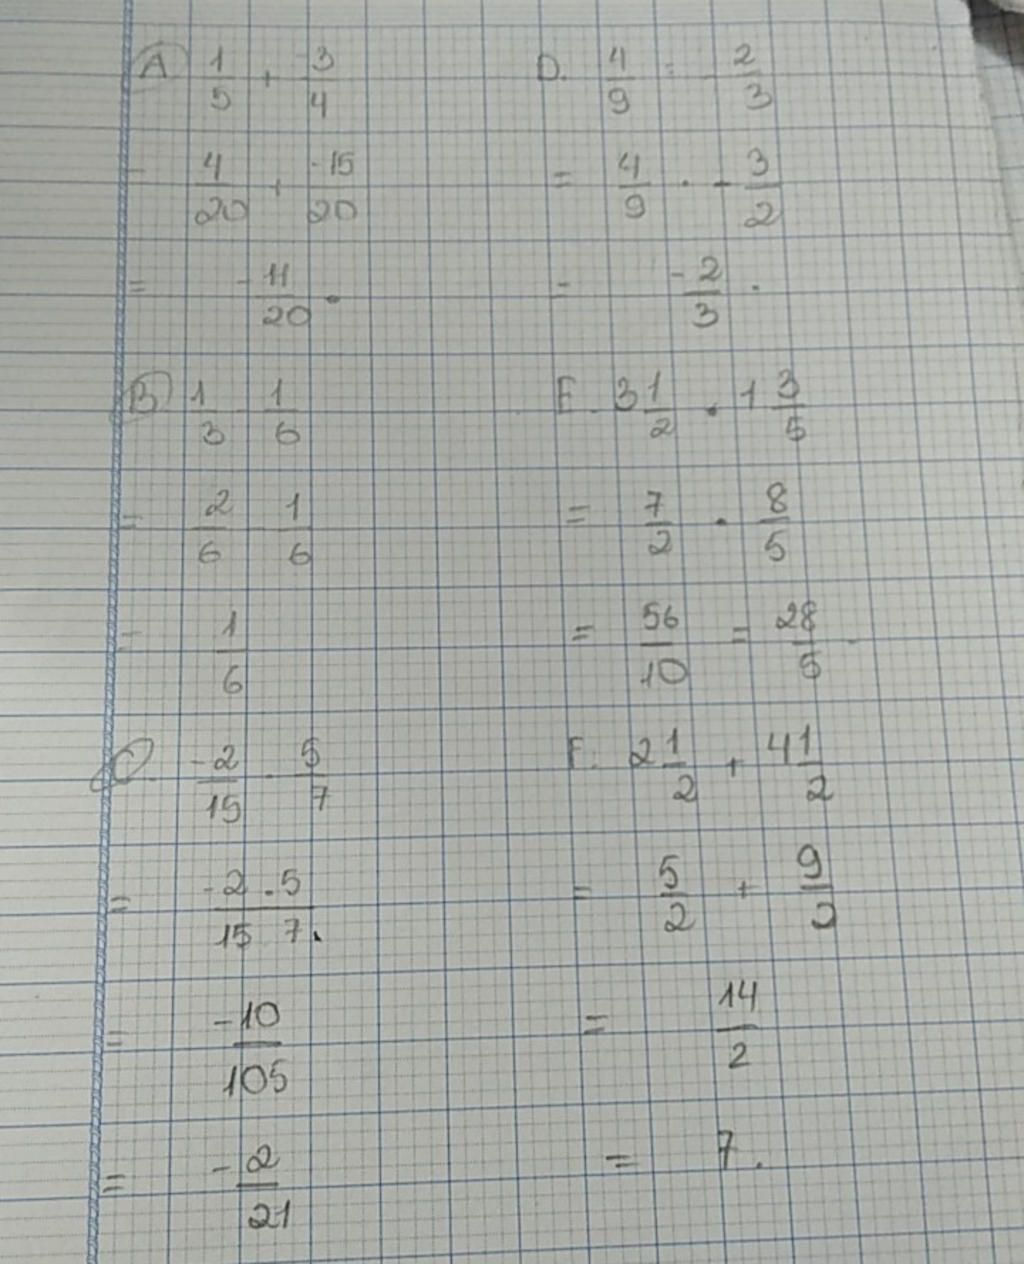 A 1/5 + -3/4
= 4/20 + -15/20
= -11/20.
B 1/3 - 1/6
= 2/6 - 1/6
= 1/6
C. -2/15 · 5/7
= -2 . 5 / 15 . 7
= -10/105
= -2/21
D. 4/9 : -2/3
= 4/9 · -3/2
= -2/3.
E. 3 1/2 · 1 3/5
= 7/2 · 8/5
= 56/10 = 28/5.
F. 2 1/2 + 4 1/2
= 5/2 + 9/2
= 14/2
= 7.